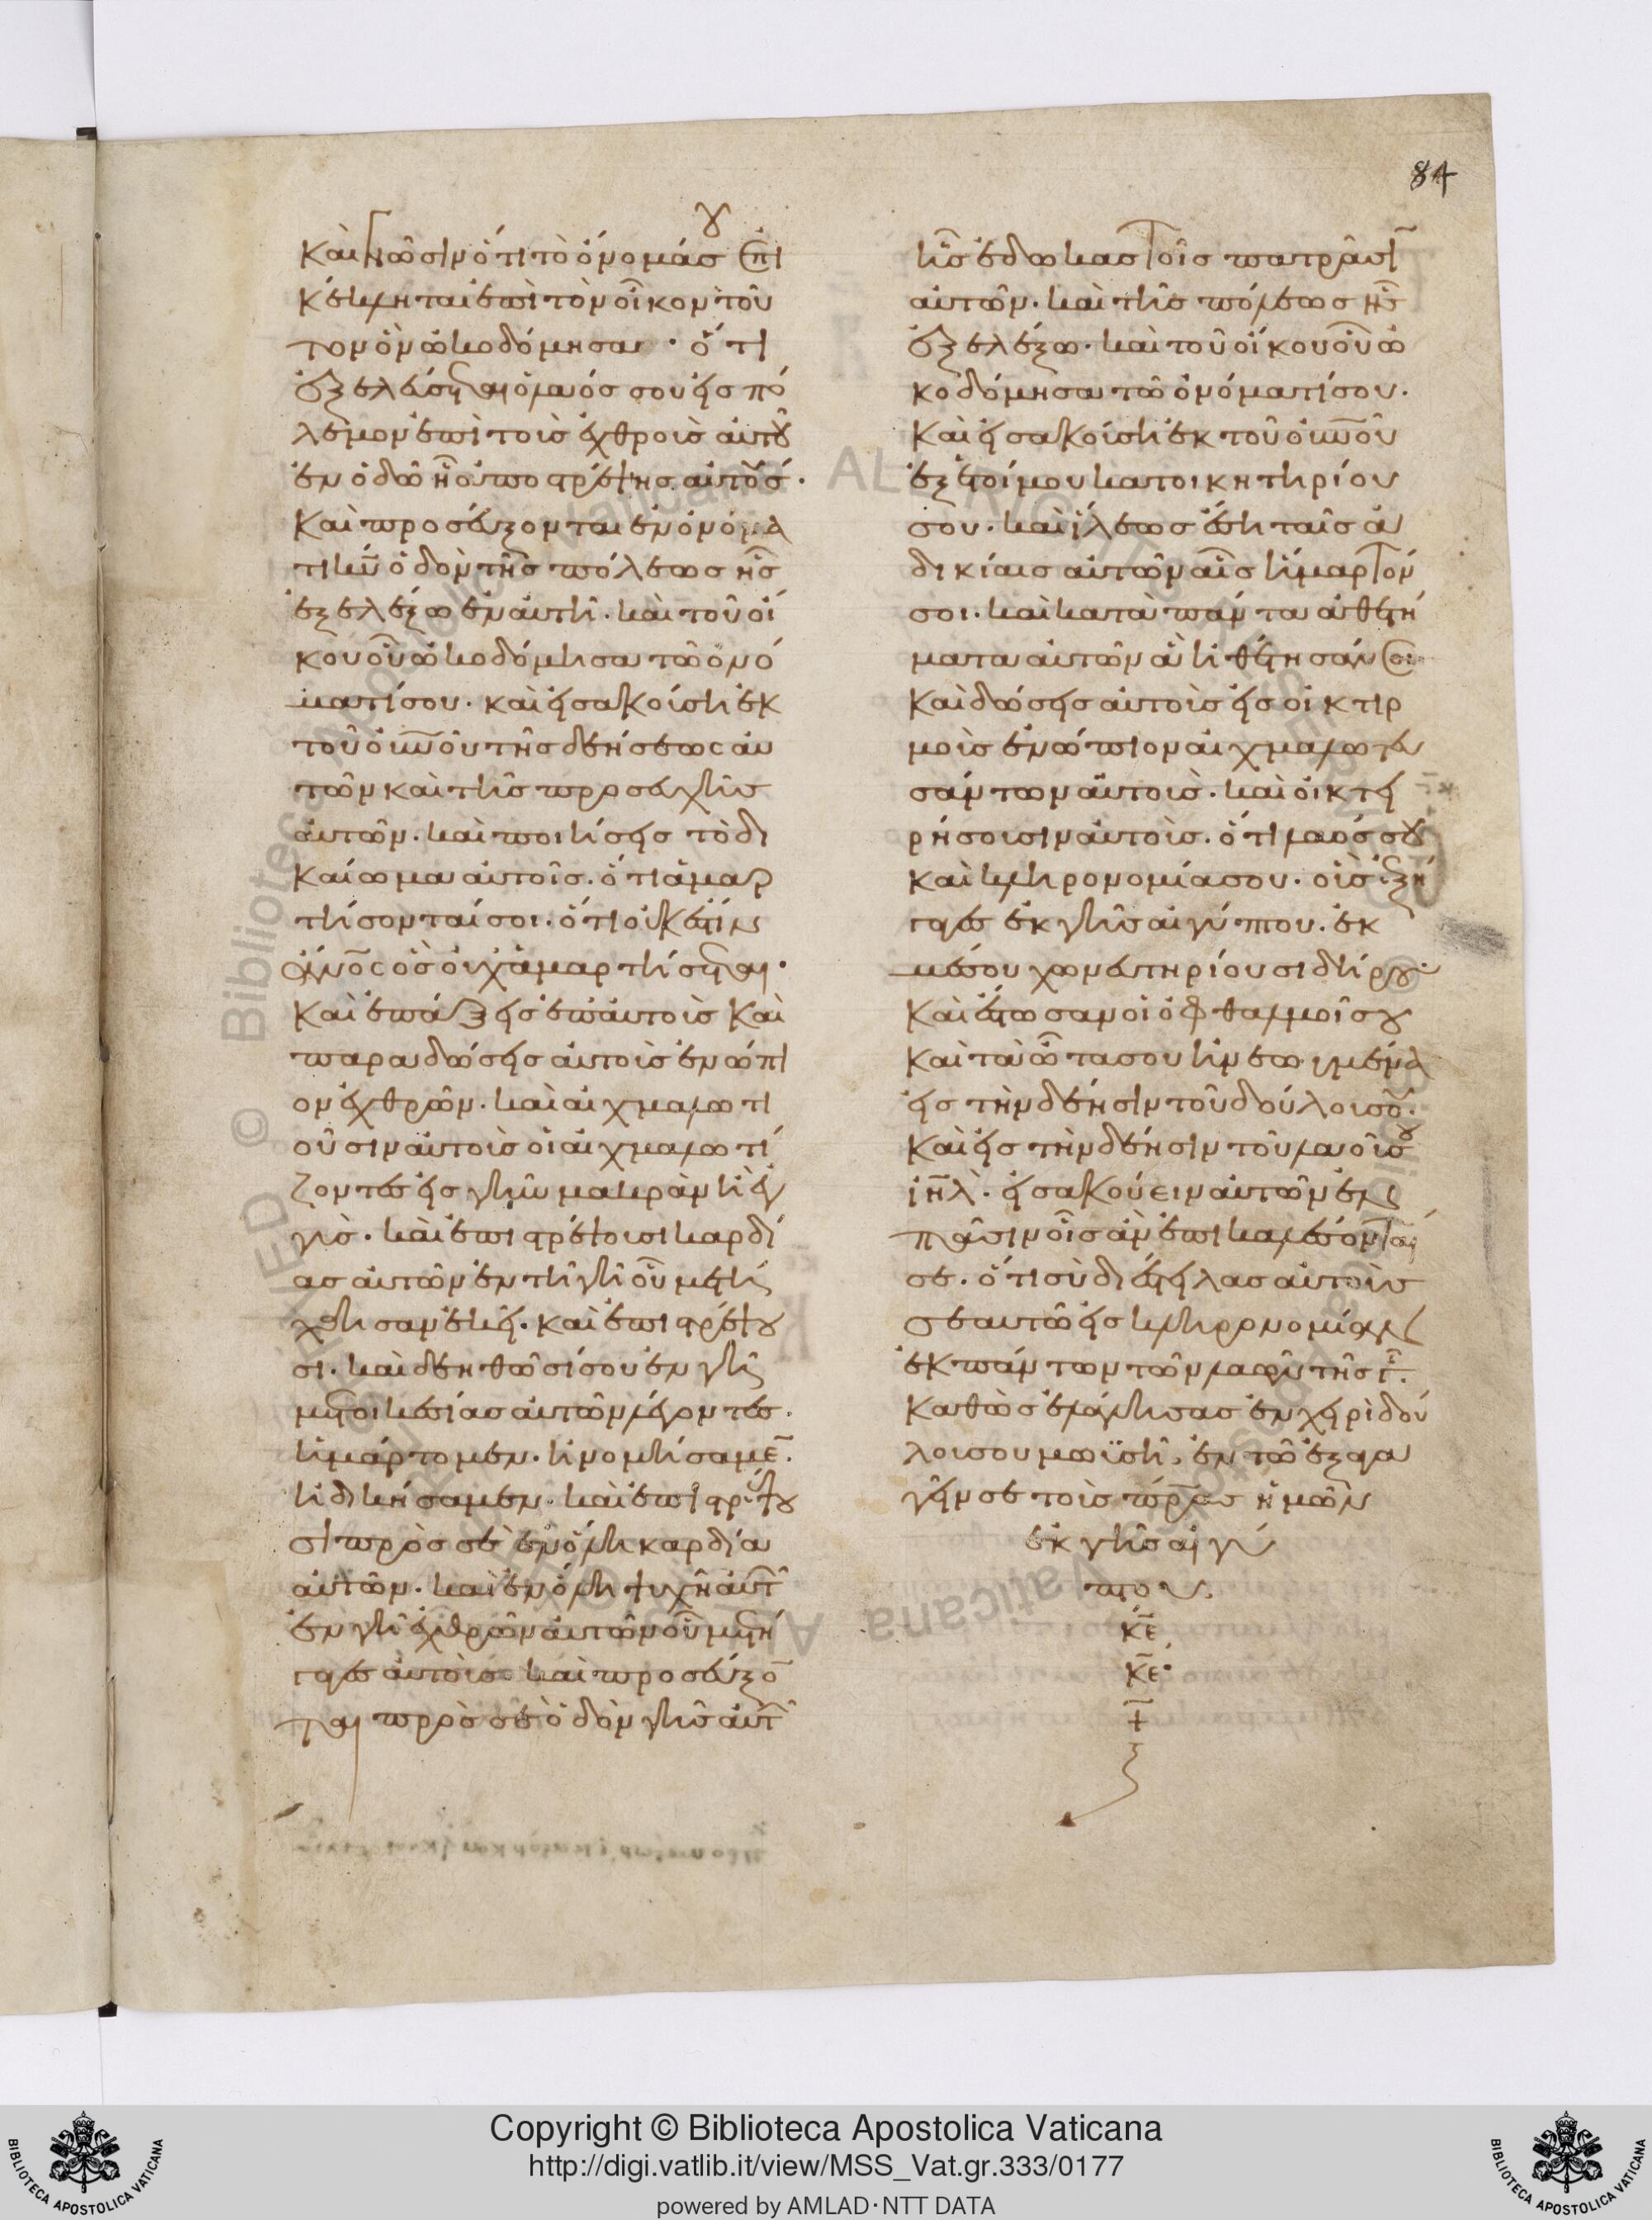 84
καὶ γνῶσιν ὅτι τὸ ὄνομά σου ἐπι
κέκληται ἐπὶ τὸν οἶκον τοῦ
τον ὃν ὠκοδόμησα · ὅτι
ἐξελεύσεται ὁ λαός σου εἰς πό
λεμον ἐπὶ τοὺς ἐχθροὺς αὐτοῦ
ἐν ὁδῷ ᾗ οὖ ἀποστρέψεις αὐτούς ·
καὶ προσεύξονται ἐν ὀνόμα
τι κυ ὁδὸν τῆς πόλεως ἧς
ἐξελέξω ἐν αὐτῆ · καὶ τοῦ οἴ
κου οὗ ὠκοδόμησα τῶ ὀνό
ματί σου · καὶ εἰσακούση ἐκ
τοῦ οὐνοῦ τῆς δεήσεως αὐ
τῶν καὶ τῆς προσευχῆς
αὐτῶν · καὶ ποιήσεις τὸ δι
καίωμα αὐτοῖς · ὅτι ἁμαρ
τήσονταί σοι · ὅτι οὐκ ἔστιν
ἄνος ὃς οὐχ ἁμαρτήσεται ·
καὶ ἐπάξεις ἐπ αὐτοὺς καὶ
παραδώσεις αὐτοὺς ἐνώπι
ον ἐχθρῶν · καὶ αἰχμαλωτι
οῦσιν αὐτοὺς οἱ αἰχμαλωτί
ζοντες εἰς γῆν μακρὰν ἢ ἐγ
γὺς · καὶ ἐπιστρέψουσι καρδί
ας αὐτῶν ἐν τῆ γῆ οὗ μετή
χθησαν ἐκεῖ · καὶ ἐπιστρέψου
σι · καὶ δεηθῶσί σου ἐν γῆ
μετοικεσίας αὐτῶν λέγοντες ·
ἡμάρτομεν · ἠνομήσαμε ·
ἠδικήσαμεν · καὶ ἐπιστρέψου
σι πρὸς σὲ ἐν ὅλη καρδία
αὐτῶν · καὶ ἐν ὅλη ψυχῆ αὐτ
ἐν γῆ ἐχθρῶν αὐτῶν οὗ μετή
γαγες αὐτοὺς καὶ προσεύξο
ται πρὸς σὲ ὁδὸν γῆς αὐτ
ἧς ἔδωκας τοῖς πατράσι
αὐτῶν · καὶ τῆς πόλεως ἧς
ἐξελέξω · καὶ τοῦ οἴκου οὗ ὠ
κοδόμησα τῶ ὀνόματί σου ·
καὶ εἰσακούση ἐκ τοῦ οὐνοῦ
ἐξ ἑτοίμου κατοικητηρίου
σου · καὶ ἵλεως ἔση ταῖς ἀ
δικίαις αὐτῶν αἷς ἥμαρτόν
σοι · καὶ κατὰ πάντα ἀθετή
ματα αὐτῶν ἃ ἠθέτησάν σοι
καὶ δώσεις αὐτοὺς εἰς οἰκτιρ
μοὺς ἐνώπιον αἰχμαλωτευ
σάντων αὐτοὺς · καὶ οἰκτει
ρήσουσιν αὐτοὺς · ὅτι λαός σου
καὶ κληρονομία σου · οὓς ἐξή
γαγες ἐκ γῆς αἰγύπτου · ἐκ
μέσου χωνευτηρίου σιδήρου ·
καὶ ἔστωσαν οἱ ὀφθαλμοί σου
καὶ τὰ ὦτα σου ἠνεωγμένα
εἰς τὴν δέησιν τοῦ δούλου σου ·
καὶ εἰς τὴν δέησιν τοῦ λαοῦ σου
ιηλ · εἰσακούειν αὐτῶν ἐν
πᾶσιν οἷς ἂν ἐπικαλέσονται
σε · ὅτι σὺ διέστειλας αὐτοὺς
σεαυτῶ εἰς κληρονομίαν
ἐκ πάντων τῶν λαῶν τῆς γῆ ·
καθὼς ἐλάλησας ἐν χειρὶ δού
λου σου μωϋσῆ, ἐν τῶ ἐξαγα
γεῖν σε τοὺς πρας ἡμῶν
ἐκ γῆς αἰγύ
πτου
κε
κε ·
+
Copyright © Biblioteca Apostolica Vaticana
http://digi.vatlib.it/view/MSS_Vat.gr.333/0177
powered by AMLAD·NTT DATA
BIBLIOTECA APOSTOLICA VATICANA
BIBLIOTECA APOSTOLICA VATICANA